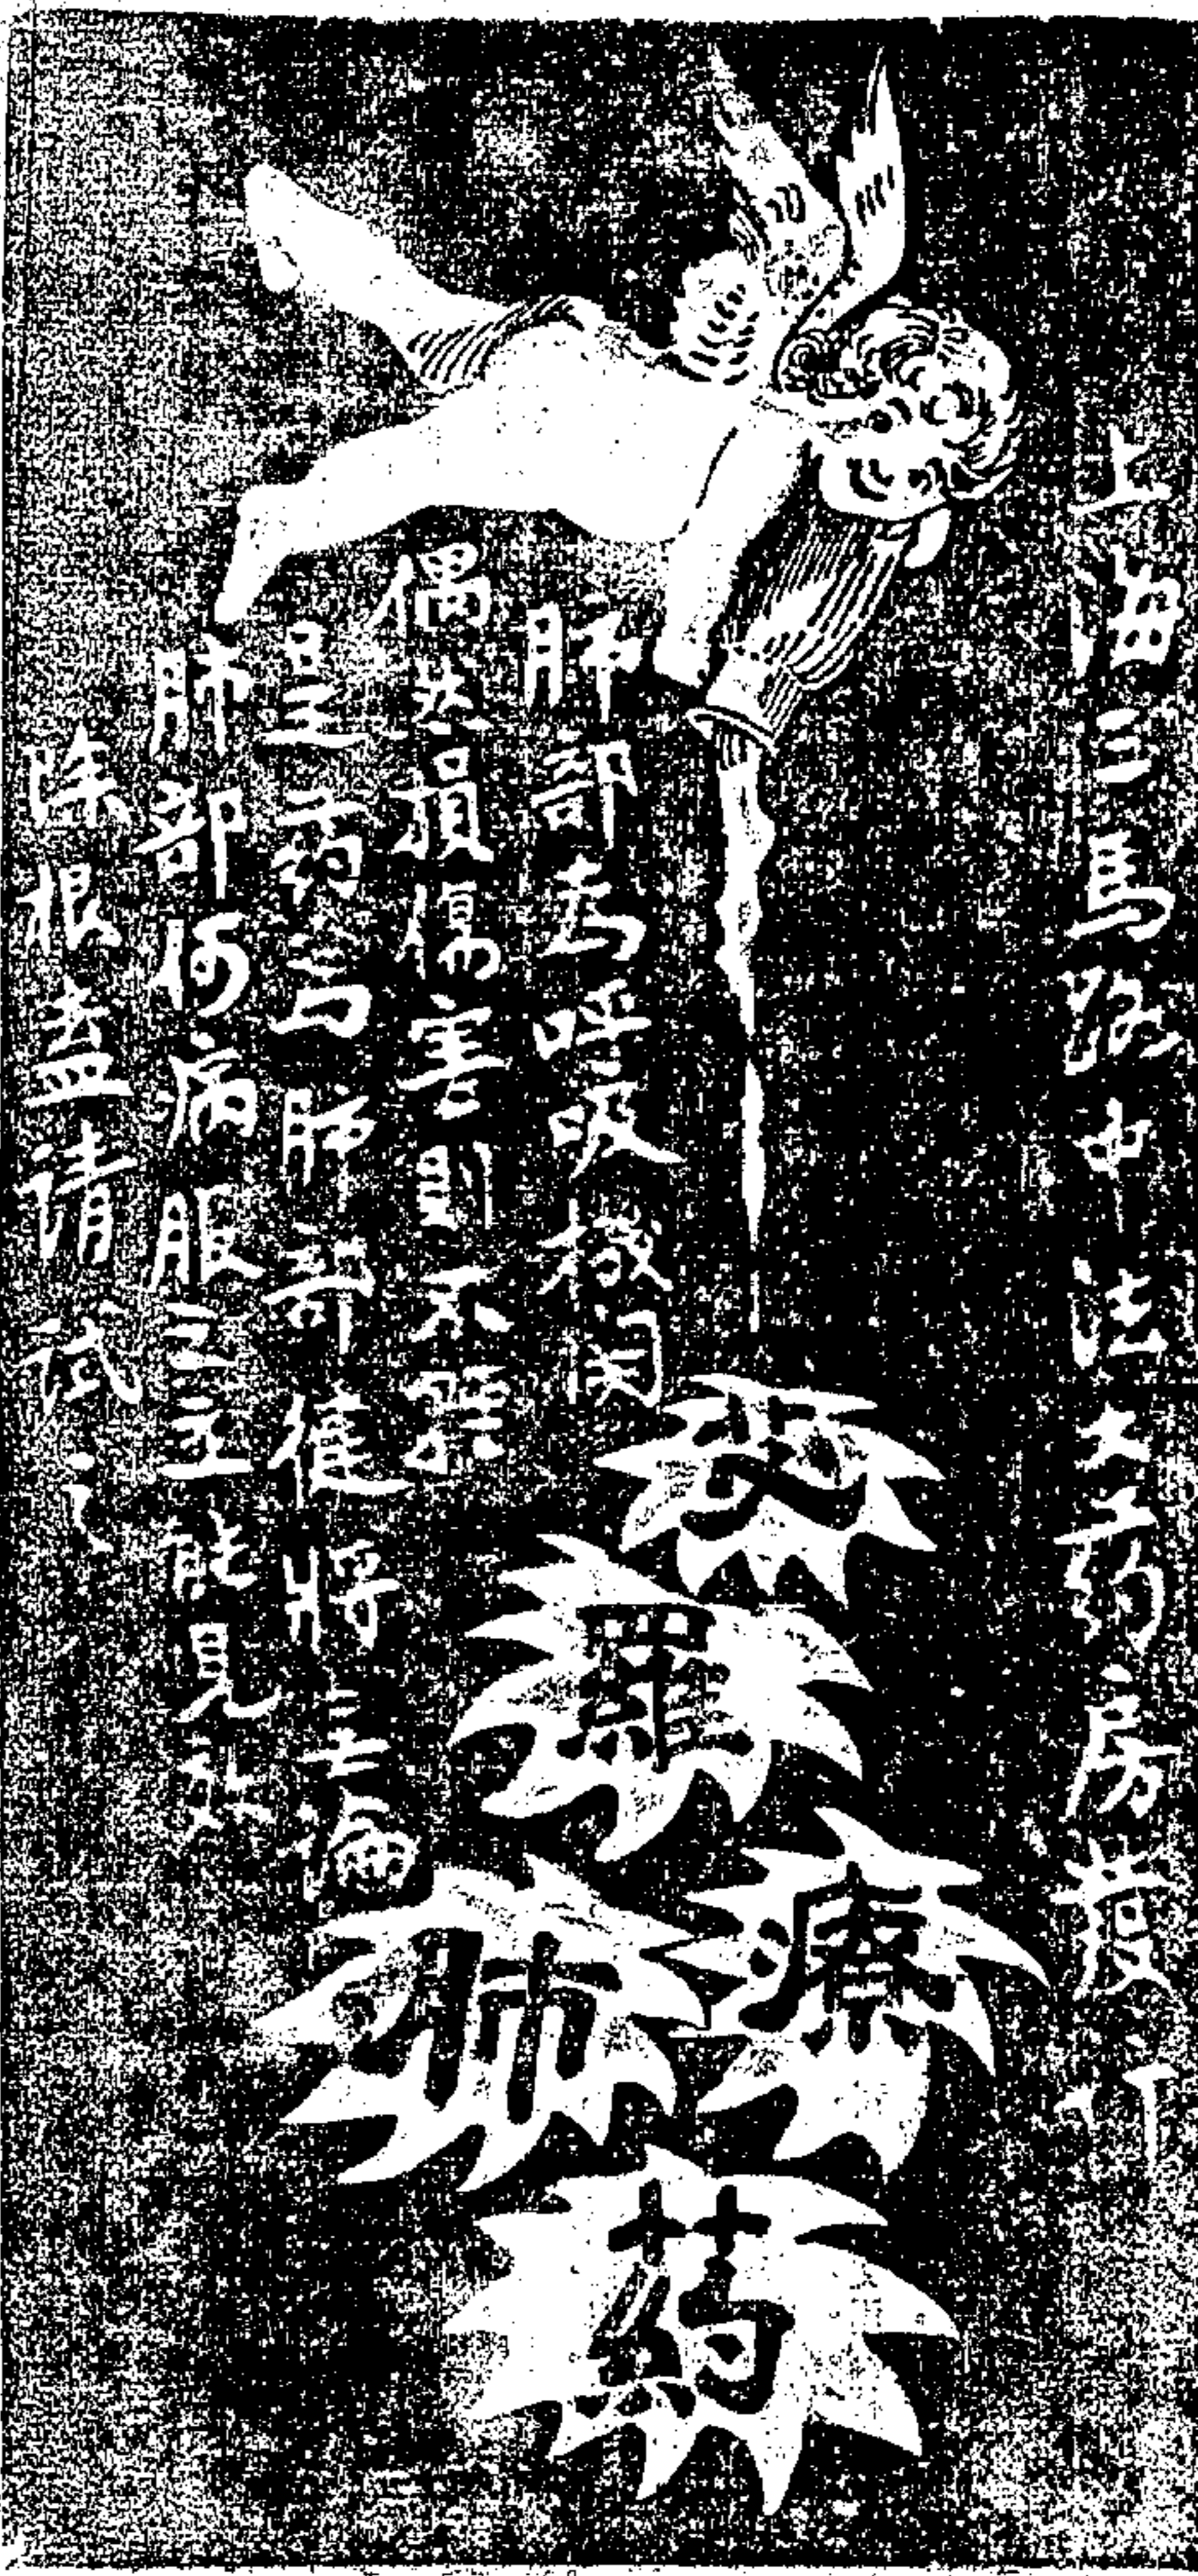 上海三馬路中法大药房發行
艾羅療肺藥
肺部為呼吸機関
偶然損傷害則不輕
是药為肺部健將無論
肺部何病服之立能見效
除根盍請試之